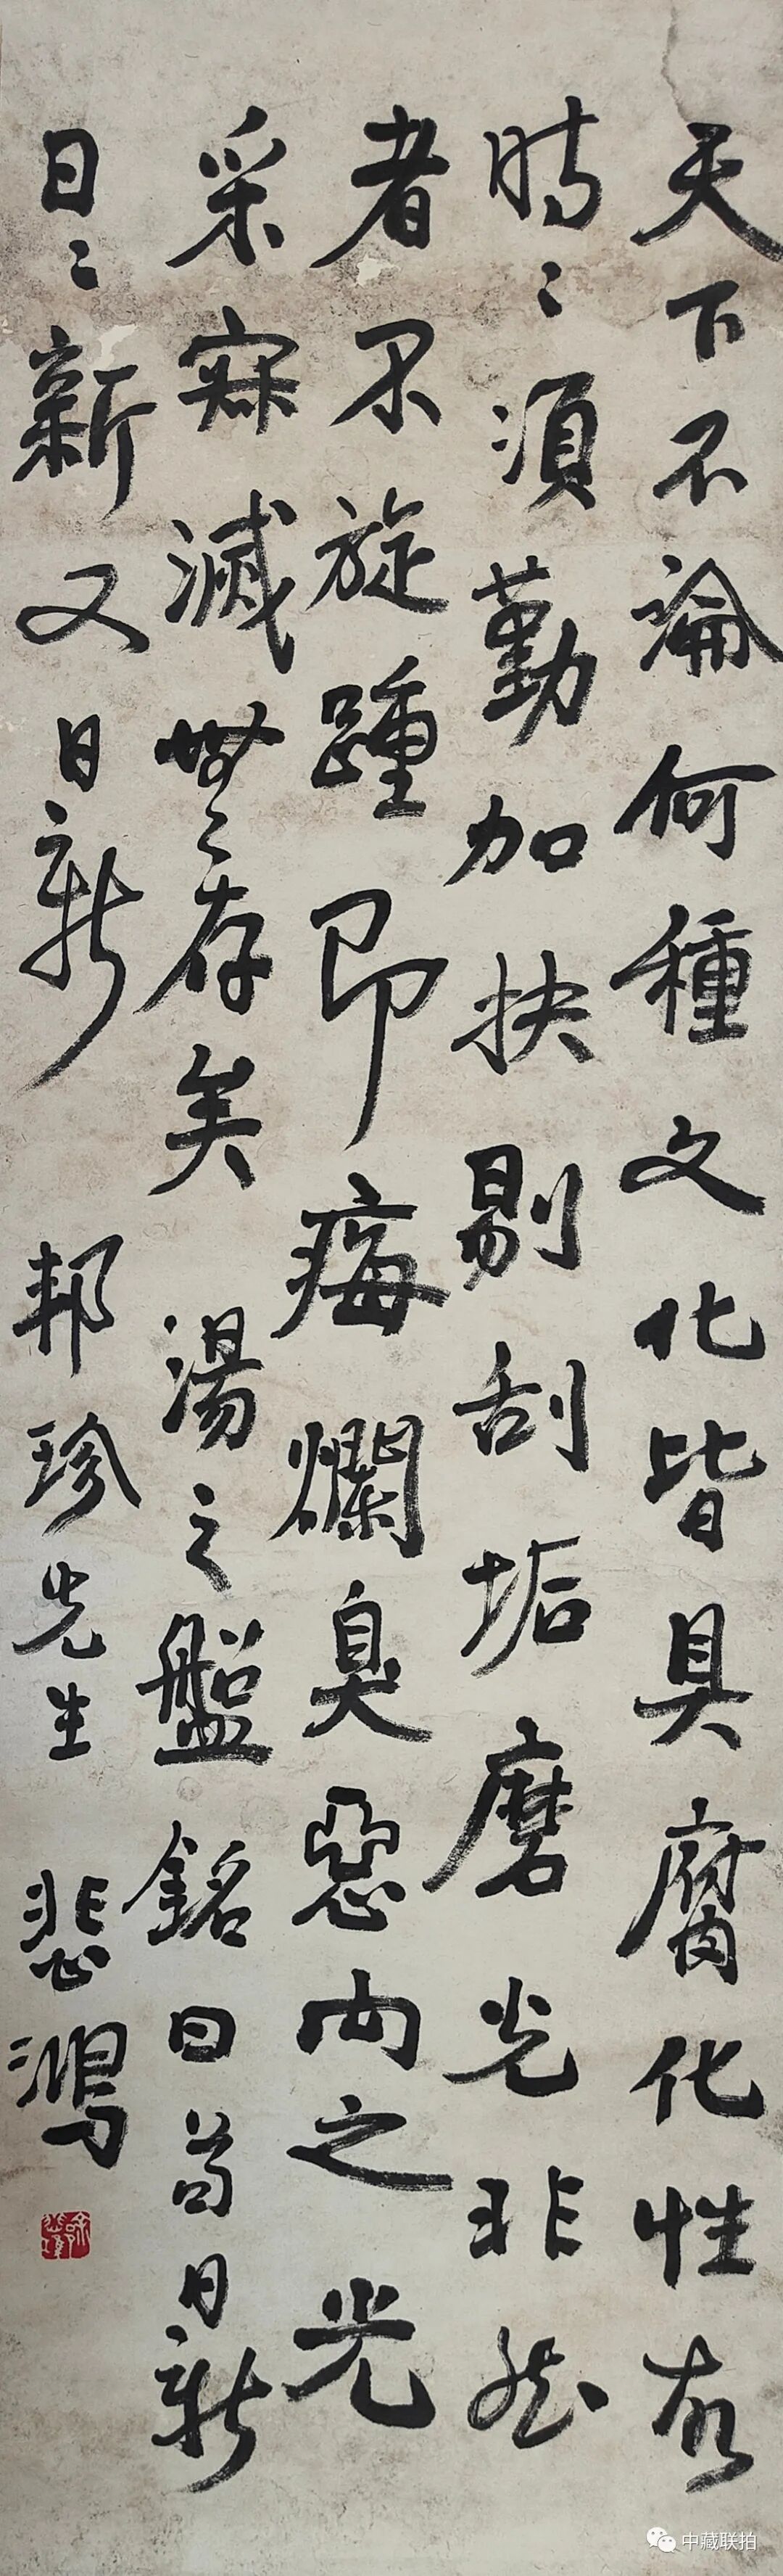 天下不論何種文化皆具腐化性故
時々須勤加抉剔刮垢磨光非然
者不旋踵即痗爛臭惡向之光
采寂滅無々存矣湯之盤銘曰苟日新
日々新又日新 邦珍先生 悲鴻
中藏联拍